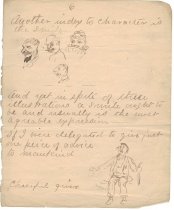 6
Another index to character is
the smile
And yet in spite of these
illustrations a smile ought to
be and usually is the most
agreeable expression
If I were delegated to give just
one piece of advice
to mankind
Cheerful giver